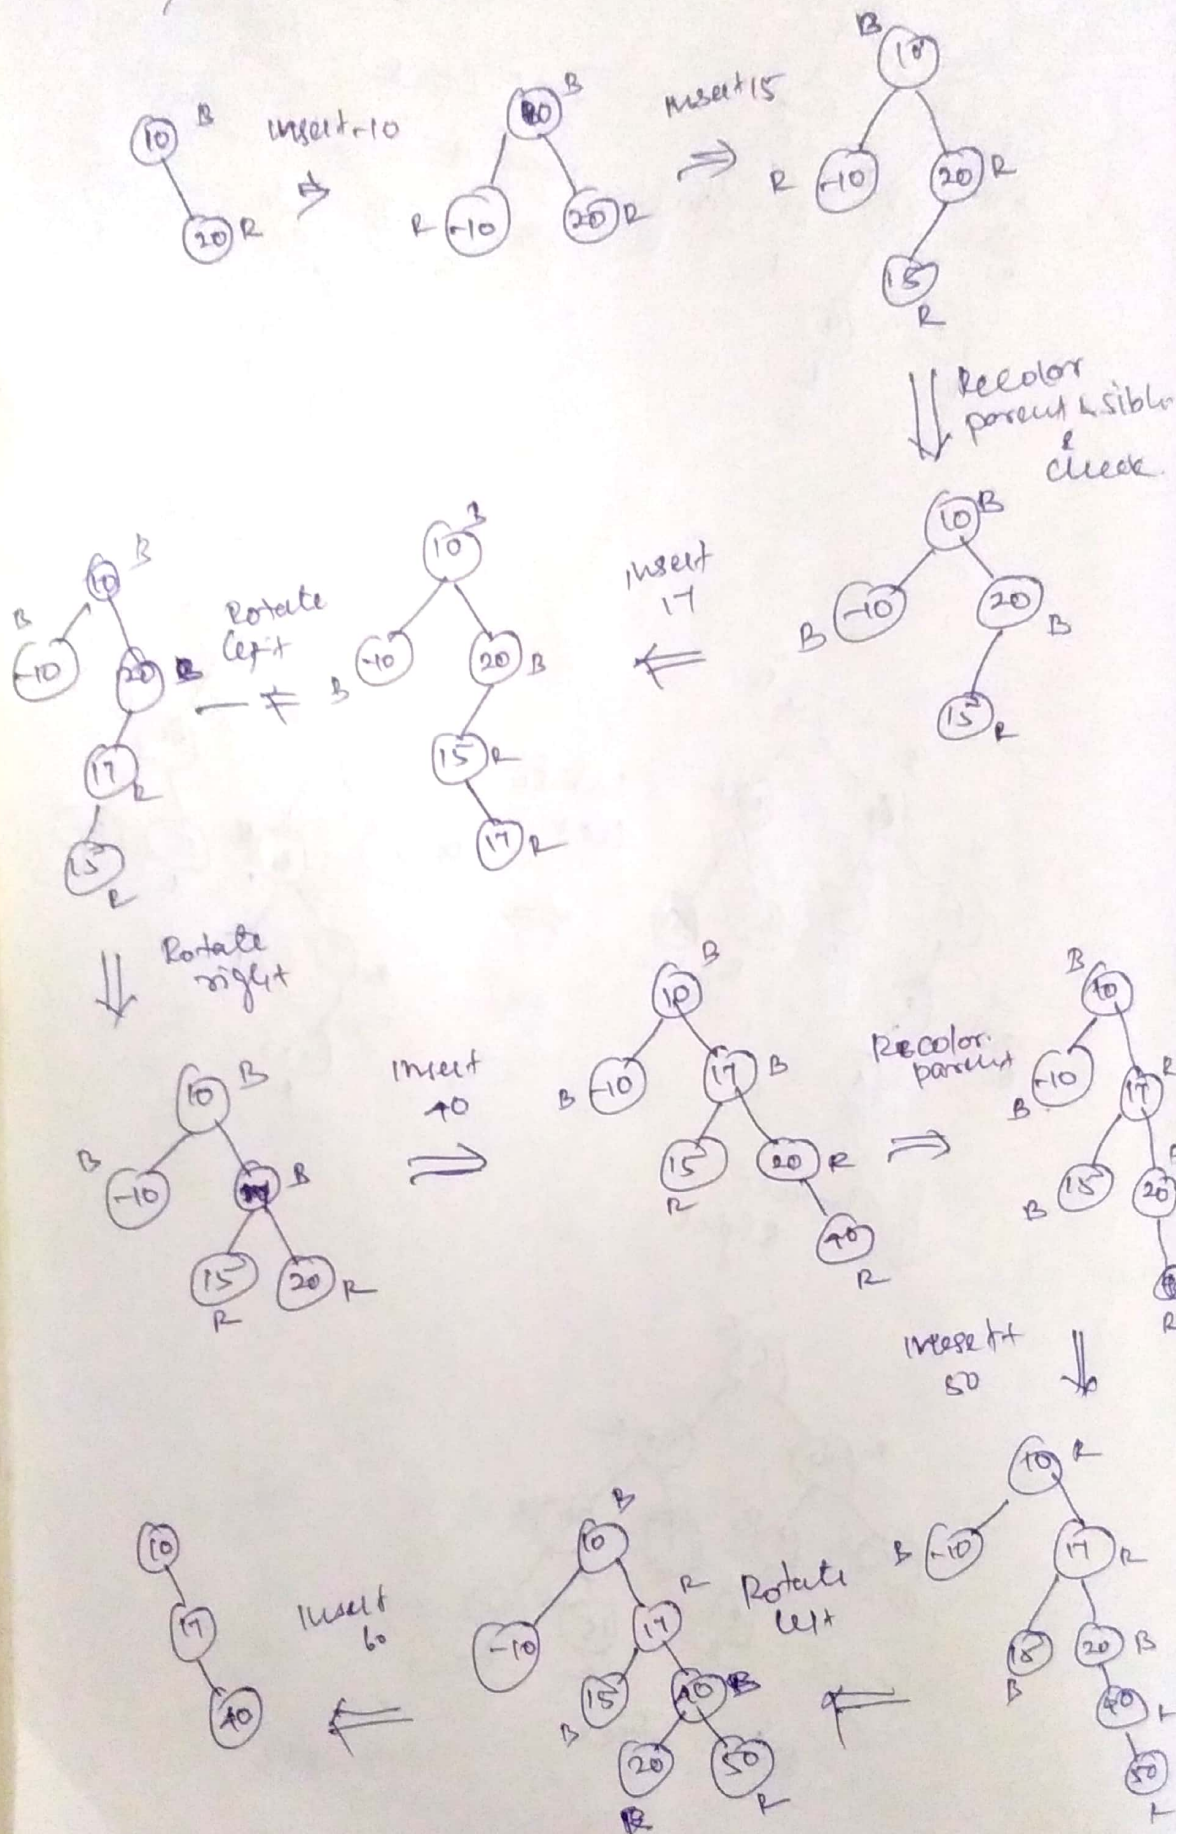 B
10
10 B
20 R
Insert -10
B
R -10
20 R
Insert 15
R -10
20 R
15
R
Recolor
parent & sibli
&
check
10 B
B -10
20 B
15 R
insert
17
B
10
-10
B
20 B
15 R
17 R
Rotate
left
B
10
B
-10
20 B
17
R
15
R
Rotate
right
10 B
B
-10
B
15
R
20 R
insert
40
B
10
B -10
17 B
15
R
20 R
40
R
Recolor
parent
B
10
-10
B
17 R
15
B
20
R
insert
50
10 R
B -10
17 R
15
B
20 B
40
50
Rotate
left
B
10
-10
R
17
15
B
40 B
20
R
50
R
Insert
60
10
17
40